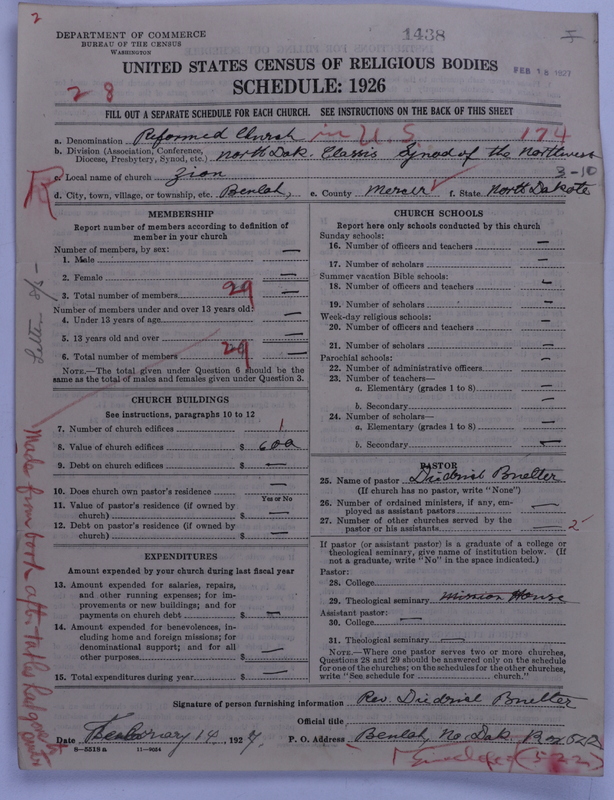 2
1438
I
DEPARTMENT OF COMMERCE
BUREAU OF THE CENSUS
WASHINGTON
UNITED STATES CENSUS OF RELIGIOUS BODIES
FEB 18 1927
SCHEDULE: 1926
28
FILL OUT A SEPARATE SCHEDULE FOR EACH CHURCH. SEE INSTRUCTIONS ON THE BACK OF THIS SHEET
a. Denomination Reformed Church in U.S. 174
b. Division (Association, Conference, Diocese, Presbytery, Synod, etc.) North Dak. Classis Synod of the Northwest
c. Local name of church Zion 3-10
d. City, town, village, or township, etc. Beulah, e. County Mercer f. State North Dakota
MEMBERSHIP
Report number of members according to definition of
member in your church
Number of members, by sex:
1. Male —
2. Female —
3. Total number of members 29 —
Number of members under and over 13 years old:
4. Under 13 years of age —
5. 13 years old and over —
6. Total number of members 29 —
NOTE.—The total given under Question 6 should be
same as the total of males and females given under Question 3.
CHURCH BUILDINGS
See instructions, paragraphs 10 to 12
7. Number of church edifices 1
8. Value of church edifices $ 600
9. Debt on church edifices $ —
10. Does church own pastor's residence —
Yes or No
11. Value of pastor's residence (if owned by
church) $ —
12. Debt on pastor's residence (if owned by
church) $ —
EXPENDITURES
Amount expended by your church during last fiscal year
13. Amount expended for salaries, repairs,
and other running expenses; for im-
provements or new buildings; and for
payments on church debt $ —
14. Amount expended for benevolences, in-
cluding home and foreign missions; for
denominational support; and for all
other purposes $ —
15. Total expenditures during year $ —
CHURCH SCHOOLS
Report here only schools conducted by this church
Sunday schools:
16. Number of officers and teachers —
17. Number of scholars —
Summer vacation Bible schools:
18. Number of officers and teachers —
19. Number of scholars —
Week-day religious schools:
20. Number of officers and teachers —
21. Number of scholars —
Parochial schools:
22. Number of administrative officers —
23. Number of teachers—
a. Elementary (grades 1 to 8) —
b. Secondary —
24. Number of scholars—
a. Elementary (grades 1 to 8) —
b. Secondary —
PASTOR
25. Name of pastor
(If church has no pastor, write "None")
26. Number of ordained ministers, if any, em-
ployed as assistant pastors —
27. Number of other churches served by the
pastor or his assistants — 2
If pastor (or assistant pastor) is a graduate of a college or
theological seminary, give name of institution below. (If
not a graduate, write "No" in the space indicated.)
Pastor:
28. College
29. Theological seminary Mission House
Assistant pastor:
30. College —
31. Theological seminary —
NOTE.—Where one pastor serves two or more churches,
Questions 28 and 29 should be answered only on the schedule
for one of the churches; on the schedules for the other churches,
write "See schedule for church."
Signature of person furnishing information Rev.
Official title
Date February 14, 1927 P. O. Address Beulah, No. Dak. Box 522
8-5519a 11-9034
(522)
Made from book after tables had gone to